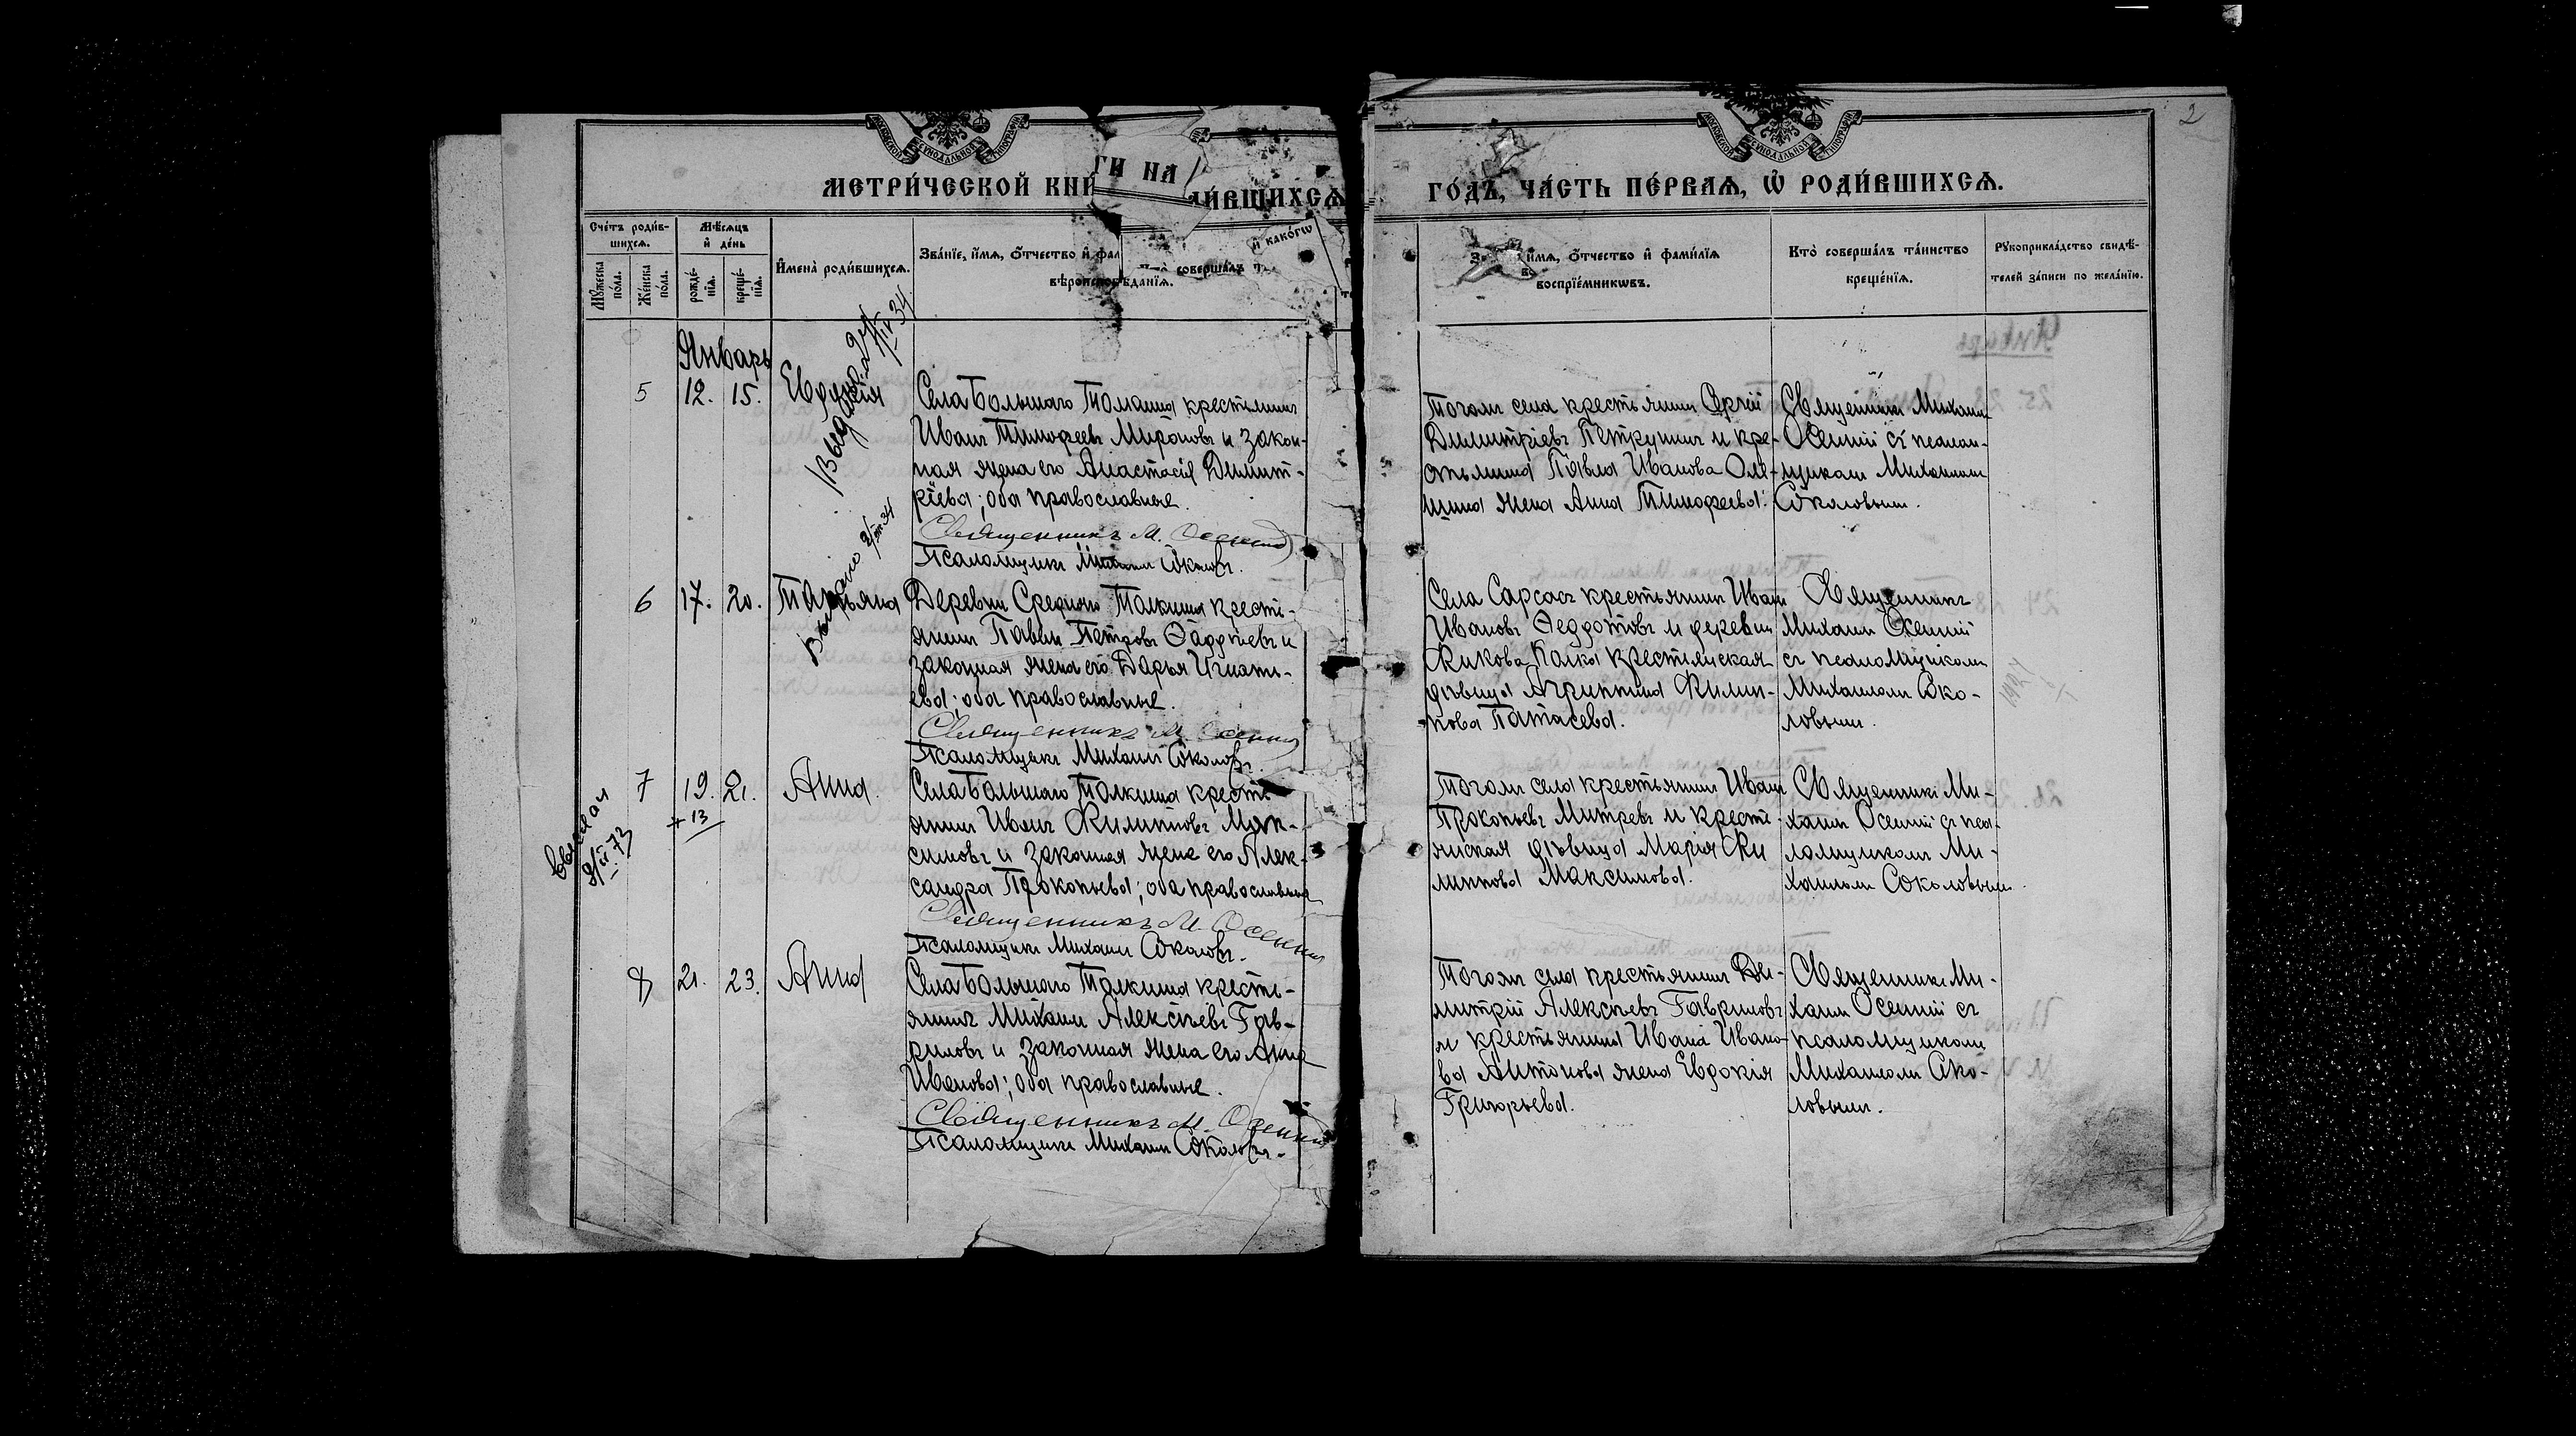 2
МЕТРИ́ЧЕСКОЙ КНИ
ГИ НА
И́ВШИХСѦ
ГО́ДЪ, ЧА́СТЬ ПЕ́РВАѦ, Ѡ҆ РОДИ́ВШИХСѦ.
Сче́тъ роди́в-
шихсѧ.
Мѣ́сѧцъ
и҆ де́нь
Мꙋ́жеска
по́ла.
Же́нска
по́ла.
рожде́-
нїѧ.
креще́-
нїѧ.
И҆мена̀ роди́вшихсѧ.
Зва́нїе, и҆́мѧ, ѻ҆́тчество и҆ фа
совершалъ
и҆ како́гѡ
вѣроисповѣ́данїѧ.
и҆́мѧ, ѻ҆́тчество и҆ фами́лїѧ
воспрїе́мникѡвъ.
Кто̀ соверша́лъ та́инство
креще́нїѧ.
Рꙋкоприкла́дство свидѣ́-
телей за́писи по жела́нїю.
Январь
5 12. 15. Евдокія
Села Большаго Толкиша крестьянинъ
Иванъ Тимофеевъ Мироновъ и закон-
ная жена его Анастасія Димит-
ріева; оба православные.
Священникъ М. Осенній
Псаломщикъ Михаилъ Соколовъ.
Тогоже села крестьянинъ Сергій
Димитріевъ Петрунинъ и кре-
стьянина Павла Иванова
жена Анна Тимофеева.
Священникъ Михаилъ
Осенній съ псалом-
щикомъ Михаиломъ
Соколовымъ.
6 17. 20. Татьяна
Деревни Средняго Толкиша кресть-
янинъ Павелъ Петровъ Ѳаддѣевъ и
законная жена его Дарья Игнать-
ева; оба православные.
Священникъ М. Осенній
Псаломщикъ Михаилъ Соколовъ.
Села Сарсасъ крестьянинъ Иванъ
Ивановъ Ѳедотовъ и деревни
крестьянская
дѣвица Агриппина Филип-
пова
Священникъ
Михаилъ Осенній
съ псаломщикомъ
Михаиломъ Соко-
ловымъ.
7 19. 21. Анна.
+ 13
Села Большаго Толкиша кресть-
янинъ Иванъ Филипповъ Мак-
симовъ и законная жена его Алек-
сандра Прокопьева; оба православные
Священникъ М. Осенній
Псаломщикъ Михаилъ Соколовъ.
Тогоже села крестьянинъ Иванъ
Прокопьевъ Митревъ и кресть-
янская дѣвица Марія Фи
липпова Максимова.
Священникъ Ми-
хаилъ Осенній съ пса-
ломщикомъ Ми-
хаиломъ Соколовымъ.
8 21. 23. Анна
Села Большаго Толкиша кресть-
янинъ Михаилъ Алексѣевъ Гав-
риловъ и законная жена его Анна
Иванова; оба православные.
Священникъ М. Осенній
Псаломщикъ Михаилъ Соколовъ.
Тогоже села крестьянинъ Ди-
митрій Алексѣевъ Гавриловъ
и крестьянина Ивана Ивано-
ва Антонова жена Евдокія
Григорьева.
Священникъ Ми-
хаилъ Осенній съ
псаломщикомъ
Михаиломъ Соко-
ловымъ.